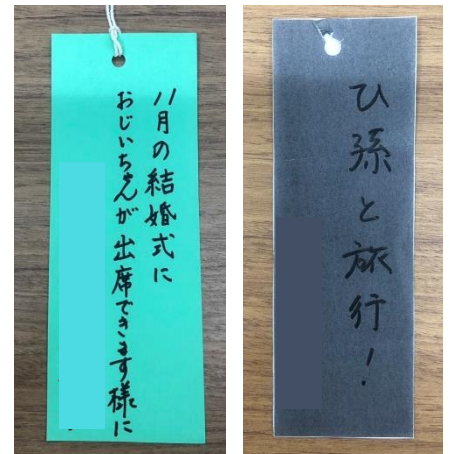 11月の結婚式に
おじいちゃんが出席できます様に
ひ孫と旅行!